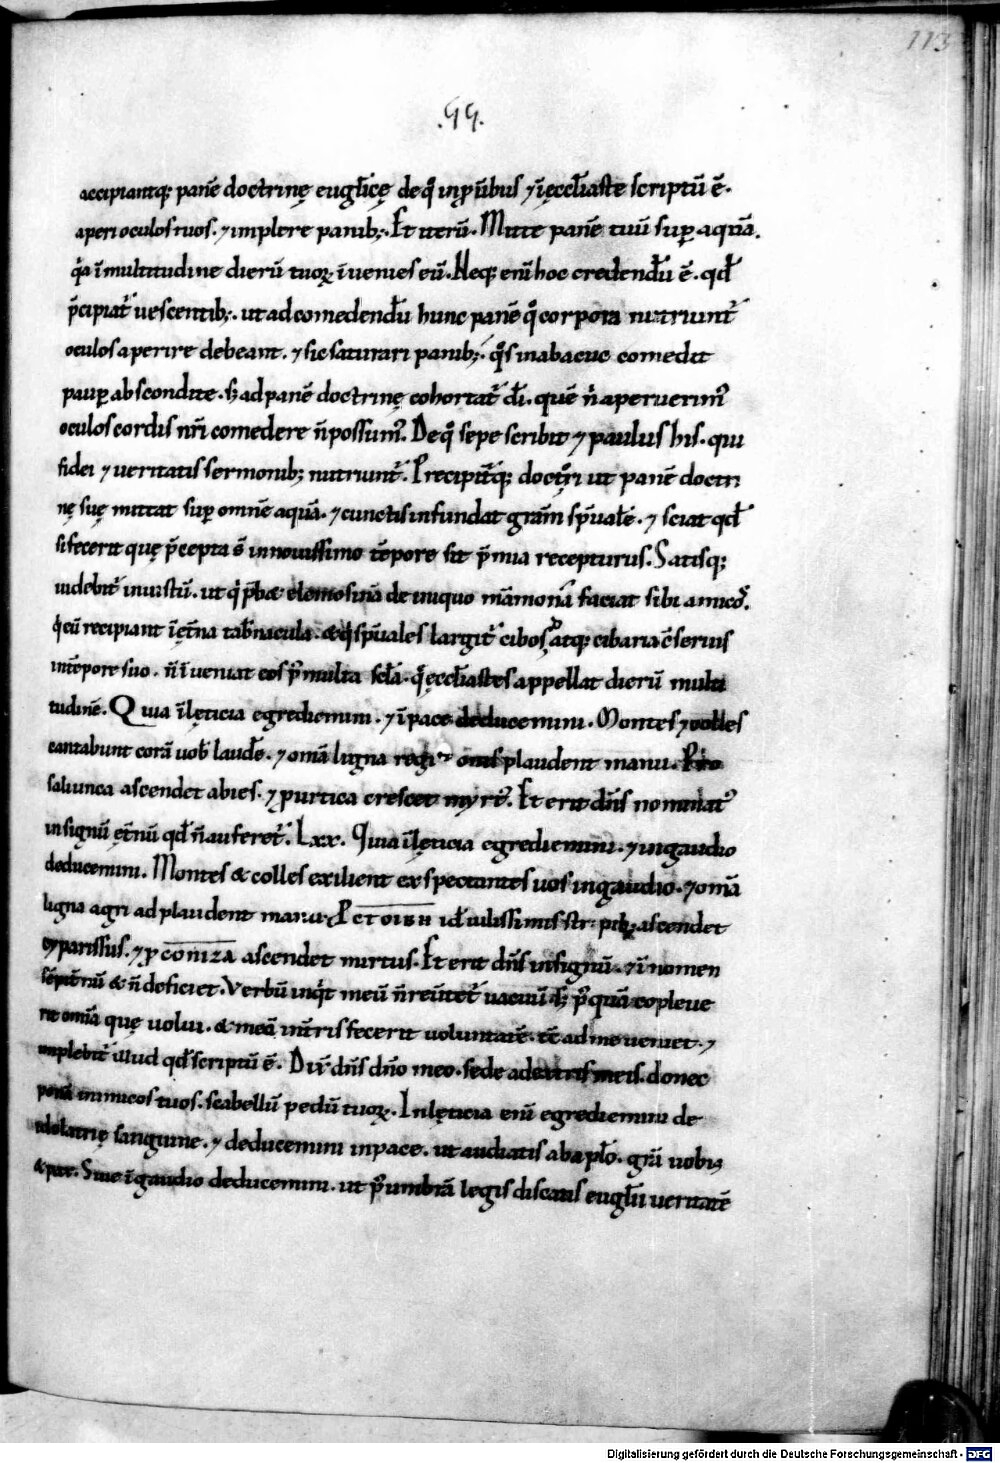 113
.55.
accipiantq; panē doctrinę eugl̄icę de q̊ in ꝓ ūbus ⁊ ī ęccl̄iaste scriptū ē.
aperi oculos tuos. ⁊ implere panib;. Et iterū. Mitte panē tuū suꝑ aquā.
q̄a ī multitudine dierū tuoꝝ īuenies eū. Neq; enī hoc credendū ē. qd̄
p̄cipiat̄ uescentib;. ut ad comedendū hunc panē q̊ corpora nutriunt̄
oculos aperire debeant. ⁊ sic saturari panib;. q̊s in abacuc comedit
pauꝑ abscondite. s; ad panē doctrinę cohortat̄ dī. quē n̄ aperuerim᷒
oculos cordis nr̄i comedere n̄ possum᷒. De q̊ sepe scribit ⁊ paulus his. qui
fidei ⁊ ueritatis sermonib; nutriunt̄. Precipit̄q; doctori ut panē doctri
nę suę mittat suꝑ omnē aquā. ⁊ cunctis infundat gr̄am sp̄ualē. ⁊ sciat qd̄
si fecerit quę p̄cepta s̄ in nouissimo tēpore sit p̄mia recepturus. Satisq;
uidebit̄ iniustū. ut q̇ p̄bet elemosinā de iniquo māmona faciat sibi amicos.
q̇ eū recipiant ī ęt̄na tab̄nacula. & q̇ sp̄uales largit̄ cibos atq; cibaria c̄seruis
in tēpore suo. n̄ īueniat eos p̄ multa scl̄a. q̊ ęccl̄iastes appellat dierū multi
tudinē. Quia ī lęticia egrediemini. ⁊ ī pace deducemini. Montes ⁊ colles
cantabunt corā uob̄ laudē. ⁊ omīa ligna regionis plaudent manu. Pro
saliunca ascendet abies. ⁊ ꝓ urtica crescet myrt᷒. Et erit dn̄s nominat᷒
in signū ęt̄nū qd̄ n̄ auferet̄. Lxx. Quia ī lęticia egrediemini. ⁊ in gaudio
deducemini. Montes & colles exilient exspectantes uos in gaudio. ⁊ omīa
ligna agri adplaudent manu. Pro id ē uilissimis ascendet
cyparissus. ⁊ ꝓ coniza ascendet mirtus. Et erit dn̄s in signū. ⁊ ī nomen
sēpit̄nū & n̄ deficiet. Verbū inq̇t meū n̄ reūtet̄ uacuū. s; p̄quā copleue
rit omīa quę uolui. & meā īut̄ris fecerit uoluntatē. tc̄ ad me ueniet. ⁊
implebit̄ illud qd̄ scriptū ē. Dix̄ dn̄s dn̄o meo. sede a dextris meis. donec
ponā inimicos tuos. scabellū pedū tuoꝝ. In lęticia enī egrediemini de
idolatrię sanguine. ⁊ deducemini in pace. ut audiatis ab apl̄o. gr̄a uobis
& pax. Siue ī gaudio deducemini. ut p̄ umbrā legis discatis eugl̄ii ueritatē
Digitalisierung gefördert durch die Deutsche Forschungsgemeinschaft - DFG